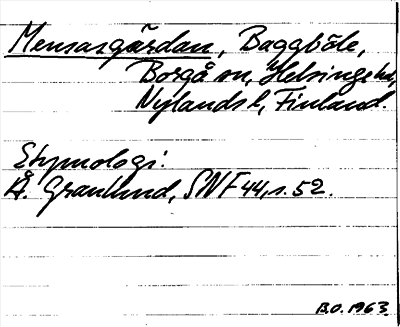 Mensasgårdan, Baggböle,
Borgå sn, Helsinge hd,
Nylands l, Finland.
Etymologi:
Å. Granlund, SNF 44, s. 52.
B.O. 1963